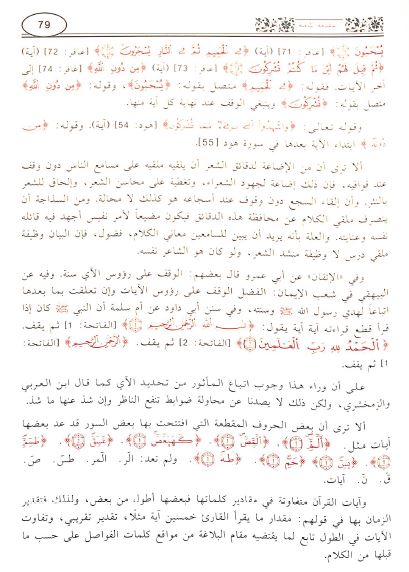 79
مقدمات مهمة
يُسْحَبُونَ [غافر: 71] (آية) ﴿فِي الْحَمِيمِ ثُمَّ فِي النَّارِ يُسْجَرُونَ﴾ [غافر: 72] (آية)
﴿ثُمَّ قِيلَ لَهُمْ أَيْنَ مَا كُنتُمْ تُشْرِكُونَ﴾ [غافر: 73] (آية) ﴿مِن دُونِ اللَّهِ﴾ [غافر: 74] إلى
آخر الآيات. فقوله: ﴿فِي الْحَمِيمِ﴾ متصل بقوله: ﴿يُسْحَبُونَ﴾، وقوله: ﴿مِن دُونِ اللَّهِ﴾
متصل بقوله: ﴿تُشْرِكُونَ﴾ وينبغي الوقف عند نهاية كل آية منها.
وقوله تعالى: ﴿وَاشْهَدُوا أَنِّي بَرِيءٌ مِمَّا تُشْرِكُونَ﴾ [هود: 54] (آية)، وقوله: ﴿مِن
دُونِهِ﴾ ابتداء الآية بعدها في سورة هود [55].
ألا ترى أن من الإضاعة لدقائق الشعر أن يلقيه ملقيه على مسامع الناس دون وقف
عند قوافيه. فإن ذلك إضاعة لجهود الشعراء، وتغطية على محاسن الشعر، وإلحاق للشعر
بالنثر. وأن إلقاء السجع دون وقوف عند أسجاعه هو كذلك لا محالة. ومن السذاجة أن
ينصرف ملقي الكلام عن محافظة هذه الدقائق فيكون مضيعاً لأمر نفيس أجهد فيه قائله
نفسه وعنايته. والعلة بأنه يريد أن يبين للسامعين معاني الكلام، فضول، فإن البيان وظيفة
ملقي درس لا وظيفة منشد الشعر، ولو كان هو الشاعر نفسه.
وفي «الإتقان» عن أبي عمرو قال بعضهم: الوقف على رؤوس الآي سنة. وفيه عن
البيهقي في شعب الإيمان: الأفضل الوقف على رؤوس الآيات وإن تعلقت بما بعدها
اتباعاً لهدي رسول الله ﷺ وسنته، وفي سنن أبي داود عن أم سلمة أن النبي ﷺ كان إذا
قرأ قطع قراءته آية آية يقول: ﴿بِسْمِ اللَّهِ الرَّحْمَٰنِ الرَّحِيمِ﴾ [الفاتحة: 1] ثم يقف.
﴿الْحَمْدُ لِلَّهِ رَبِّ الْعَالَمِينَ﴾ [الفاتحة: 2] ثم يقف. ﴿الرَّحْمَٰنِ الرَّحِيمِ﴾ [الفاتحة:
1] ثم يقف.
على أن وراء هذا وجوب اتباع المأثور من تحديد الآي كما قال ابن العربي
والزمخشري، ولكن ذلك لا يصدنا عن محاولة ضوابط تنفع الناظر وإن شذ عنها ما شذ.
ألا ترى أن بعض الحروف المقطعة التي افتتحت بها بعض السور قد عد بعضها
آيات مثل: ﴿الٓمٓ﴾. ﴿الٓمٓصٓ﴾. ﴿كٓهيعٓصٓ﴾. ﴿عٓسٓقٓ﴾. ﴿طسٓمٓ﴾.
﴿يسٓ﴾. ﴿حمٓ﴾. ﴿طه﴾. ولم تعد: الٓر. الٓمٓر. طسٓ. صٓ.
قٓ. نٓ. آيات.
وآيات القرآن متفاوتة في مقادير كلماتها فبعضها أطول من بعض، ولذلك فتقدير
الزمان بها في قولهم: مقدار ما يقرأ القارئ خمسين آية مثلاً، تقدير تقريبي، وتفاوت
الآيات في الطول تابع لما يقتضيه مقام البلاغة من مواقع كلمات الفواصل على حسب ما
قبلها من الكلام.